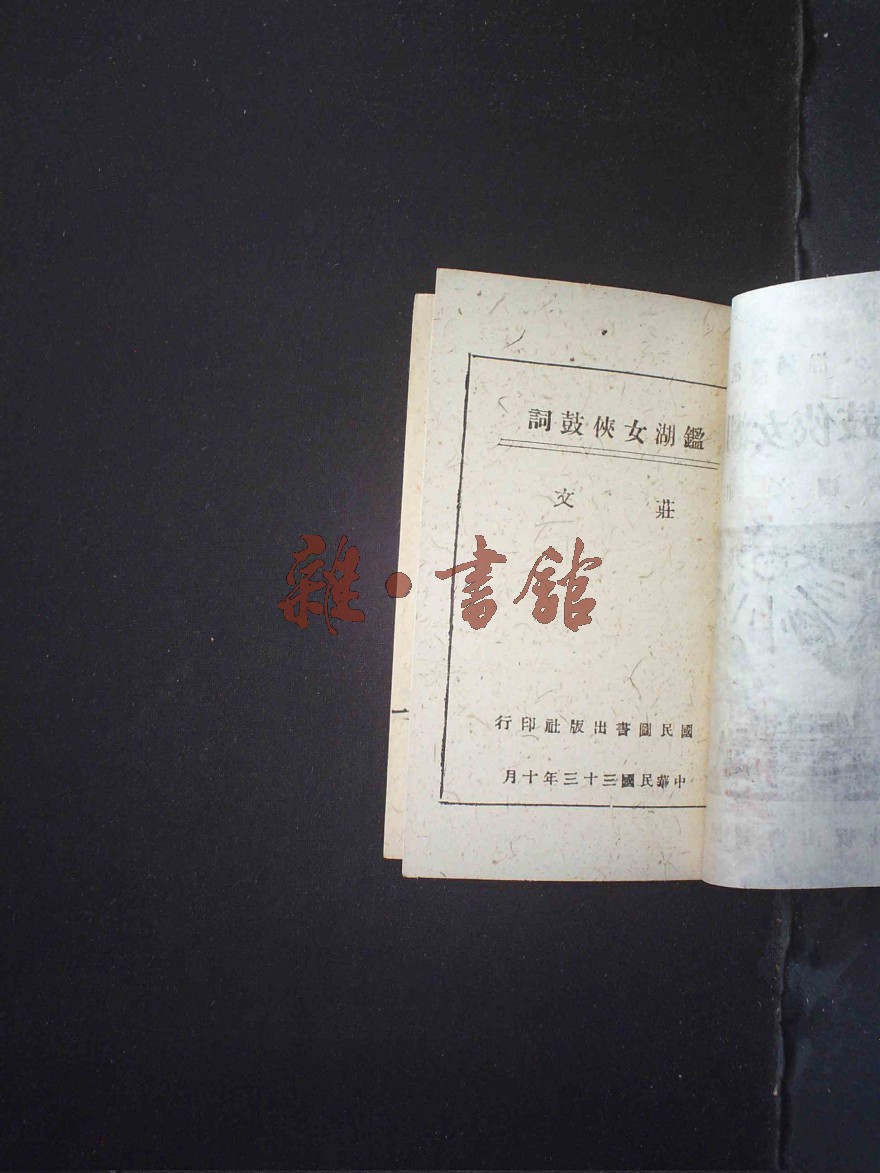 鑑湖女俠鼓詞
莊文
雜·書館
國民圖書出版社印行
中華民國三十三年十月